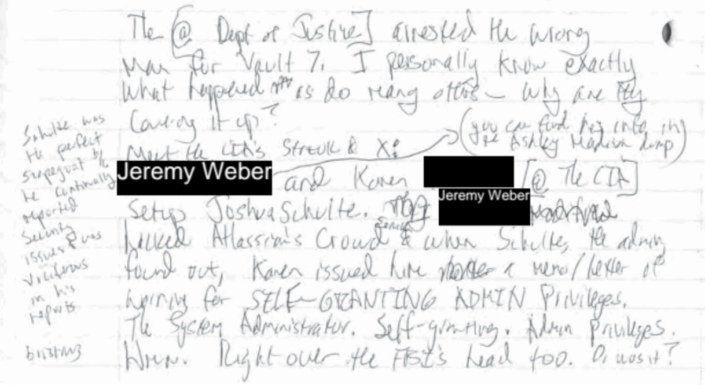 The [@ Dept of Justice] arrested the wrong
man for Vault 7. I personally know exactly
what happened as do many others – why are they
covering it up?
(you can find his info in
the Ashley Madison dump)
Meet the CIA's
Jeremy Weber and Karen [@ The CIA]
Jeremy Weber
Setup Joshua Schulte.
hacked Atlassian's Crowd & when Schulte, the admin
found out, Karen issued him a memo/letter of
warning for SELF-GRANTING ADMIN Privileges.
The System Administrator. Self-granting. Admin Privileges.
Right over the head too. Or was it?
Schulte was
the perfect
scapegoat b/c
he continually
reported
security
issues & was
in his
reports.